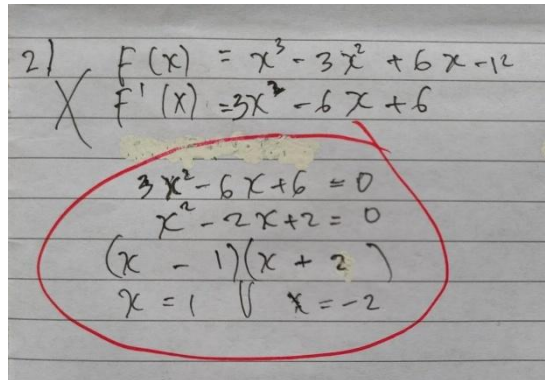 2) F(x) = x³ - 3x² + 6x - 12
X F'(x) = 3x² - 6x + 6
3x² - 6x + 6 = 0
x² - 2x + 2 = 0
(x - 1)(x + 2)
x = 1 V x = -2